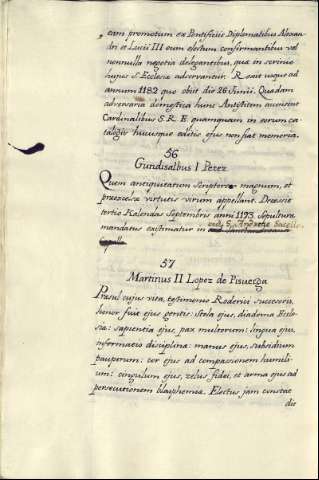 eam promotum ex Pontificiis Diplomatibus Alexan-
dri et Lucii III eum electum confirmantibus vel
nonnulla negotia delegantibus, quæ in scrinio
hujus S. Ecclesiæ adservantur. Rexit usque ad
annum 1182 quo obiit die 26 Junii. Quædam
adversaria domestica hunc Antistitem accensent
Cardinalibus S. R. E. quamquam in eorum ca
talogis hucusque editis ejus non fiat memoria.
56
Gundisalbus I Perez
Quem antiquitatum Scriptores magnum, et
præexcelsæ virtutis virum appellant. Decessit
tertio Kalendas Septembris anni 1193. Sepultura
mandatus existimatur in
Sacello
57
Martinus II Lopez de Pisuerga
Præsul cujus vita, testimonio Roderici successoris,
honor fuit ejus gentis: stola ejus, diadema Eccle-
siæ: sapientia ejus, pax multorum: lingua ejus,
informatio disciplinæ: manus ejus, subsidium
pauperum: cor ejus ad compassionem humili-
um: cingulum ejus, zelus fidei, et arma ejus ad
persecutionem blasphemiæ. Electus jam constat
die